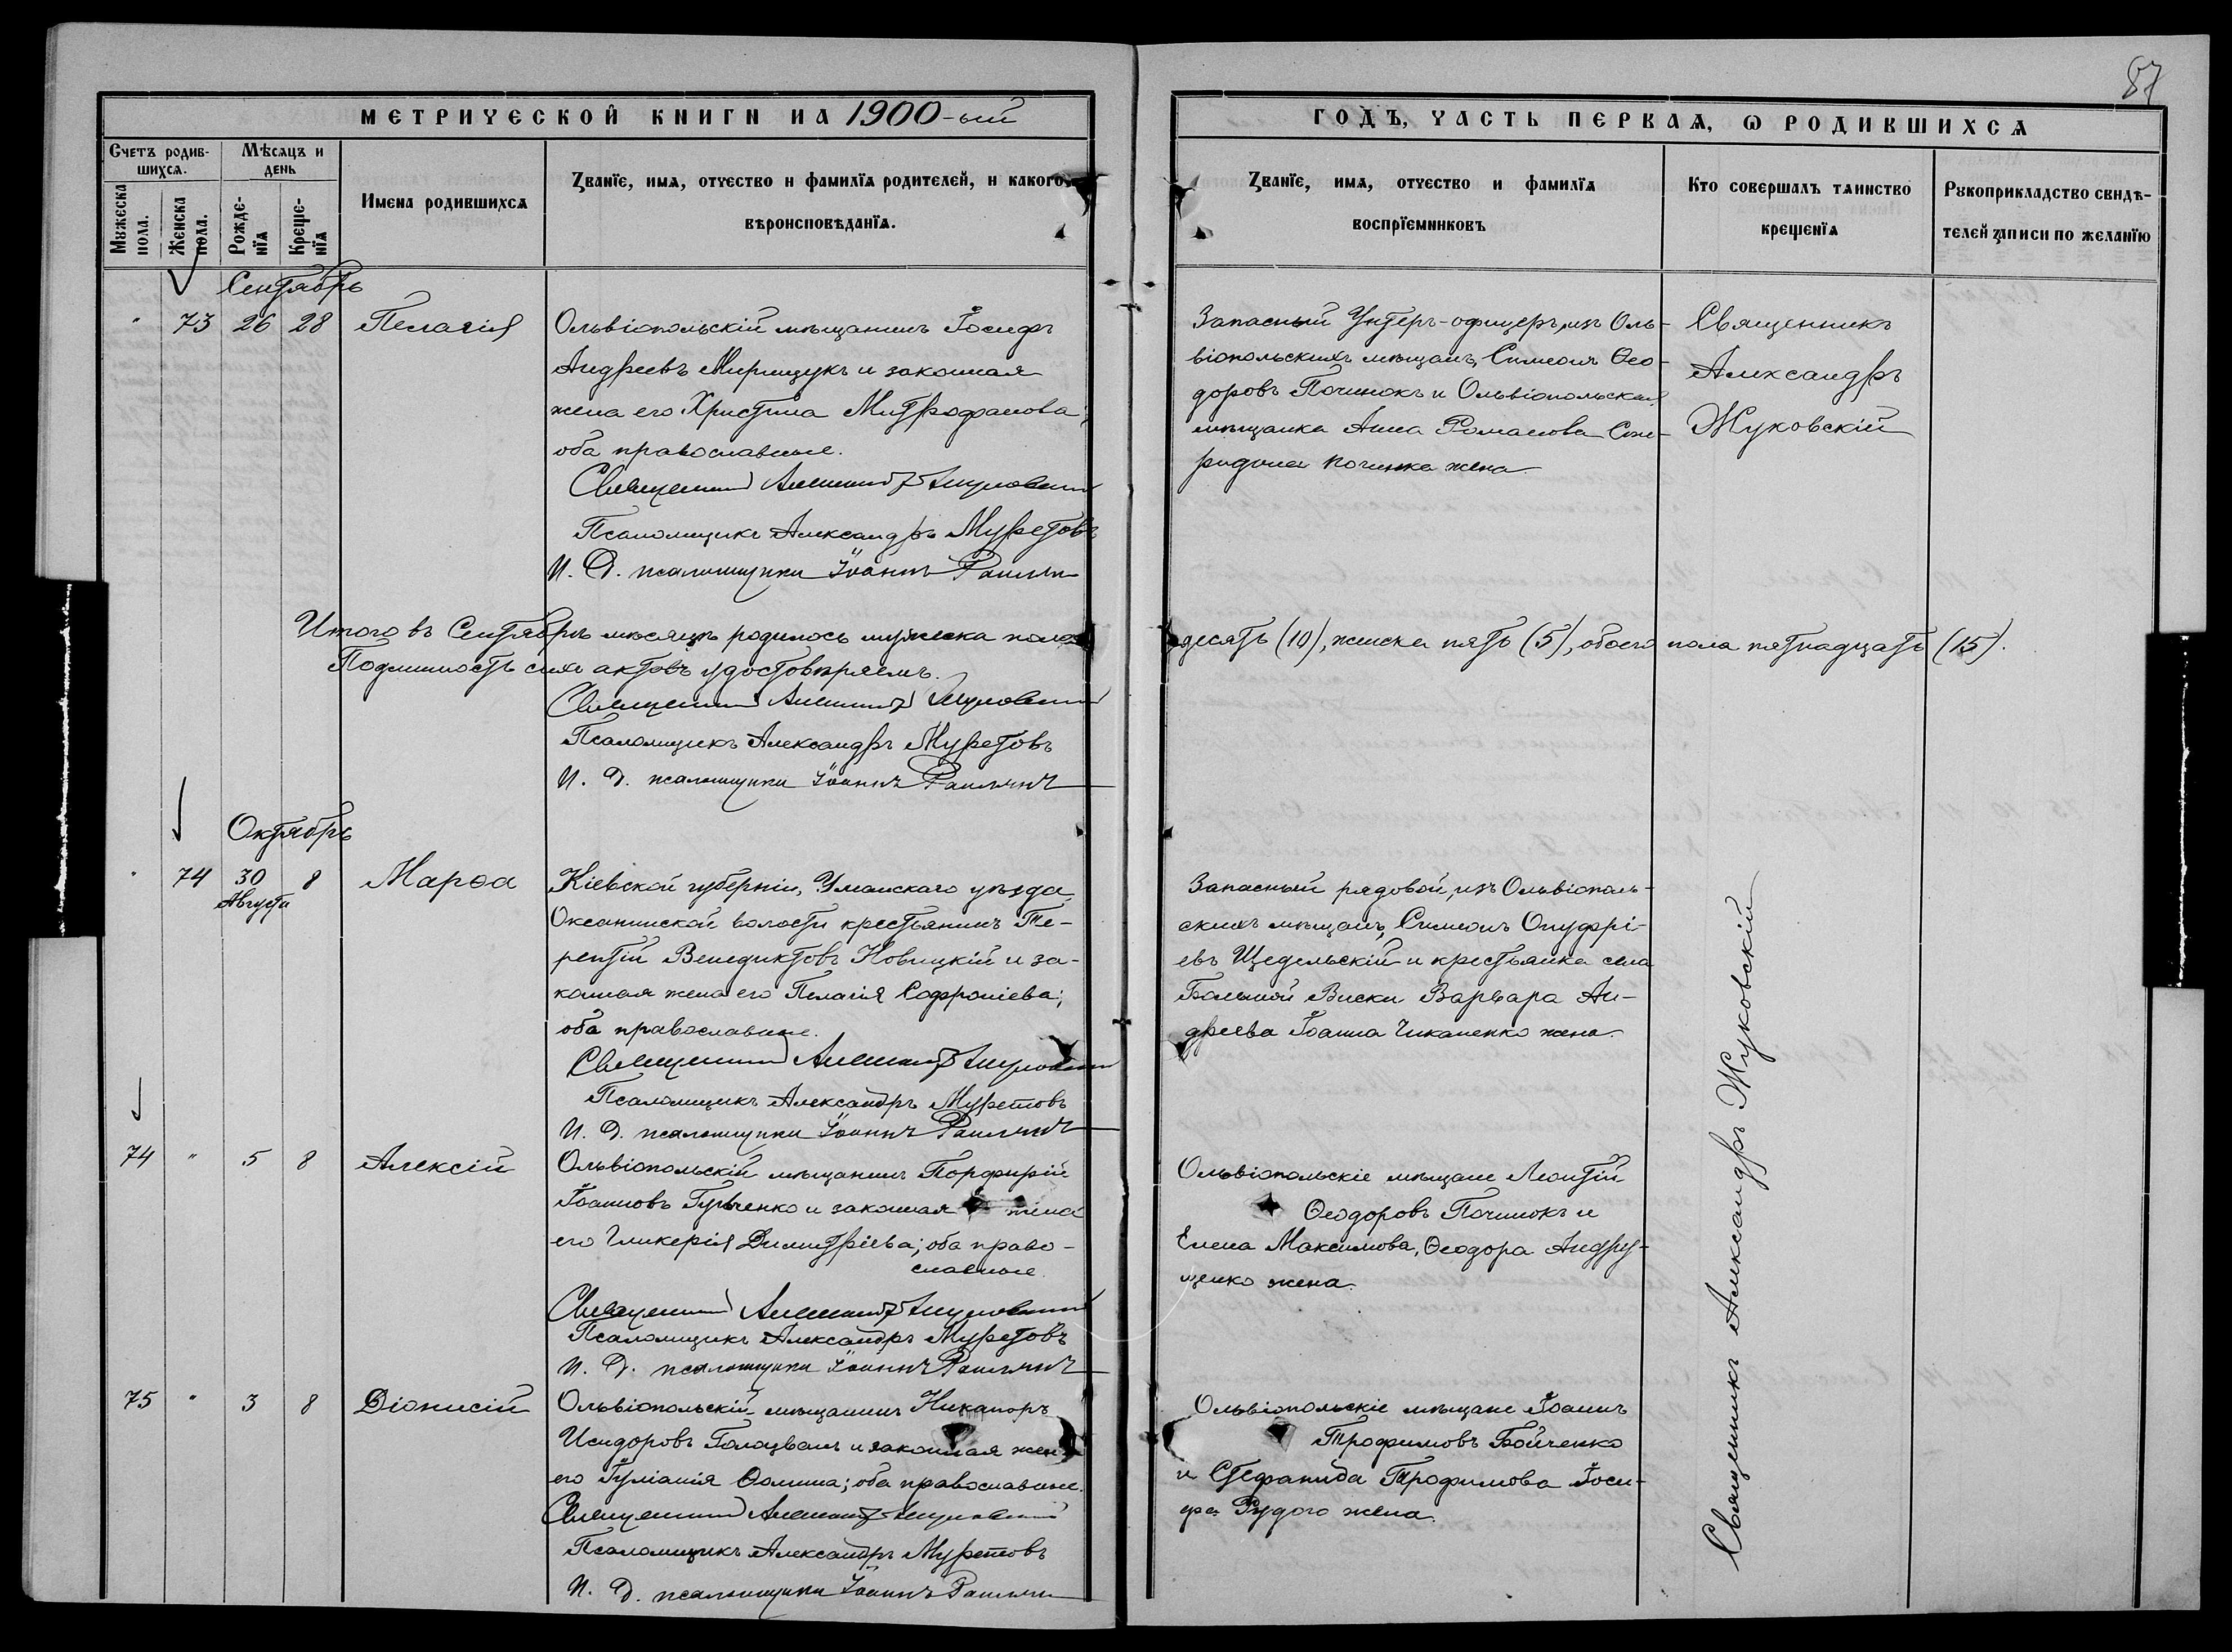 87
МЕТРИЧЕСКОЙ КНИГИ НА 1900-ый
ГОДЪ, ЧАСТЬ ПЕРВАѦ, Ѡ РОДИВШИХСѦ
Счетъ родив-
шихсѧ.
Мѣсѧцъ и
день
Мужеска
пола.
Женска
пола.
Рожде-
нїѧ
Креще-
нїѧ
Имена родившихсѧ
Званїе, имѧ, отчество и фамилїѧ родителей, и какого
вѣроисповѣданїѧ.
Званїе, имѧ, отчество и фамилїѧ
воспрїемниковъ
Кто совершалъ таинство
крещенїѧ
Рукоприкладство свидѣ-
телей записи по желанїю
Сентябрь
" 73 26 28 Пелагія
Ольвіопольскій мѣщанинъ Іосифъ
Андреевъ Мирищукъ и законная
жена его Христина Митрофанова;
оба православные.
Священникъ Александръ Жуковскій
Псаломщикъ Александръ Муретовъ
И. Д. псаломщика Іоаннъ
Запасный Унтеръ-офицеръ, изъ Оль-
віопольскихъ мѣщанъ, Симеонъ Ѳео-
доровъ Починокъ и Ольвіопольская
мѣщанка Анна Романова Спи-
ридона Починка жена
Священникъ
Александръ
Жуковскій
Итого въ Сентябрѣ мѣсяцѣ родилось мужеска пола десять (10), женска пять (5), обоего пола пятнадцать (15).
Подлинность сихъ актовъ удостовѣряемъ.
Священникъ Александръ Жуковскій
Псаломщикъ Александръ Муретовъ
И. Д. псаломщика Іоаннъ
Октябрь
" 74 30 8 Марѳа
Августа
Кіевской губерніи, Уманскаго уѣзда
Оксанинской волости крестьянинъ Те-
рентій Венедиктовъ Новицкій и за-
конная жена его Пелагія Софроніева;
оба православные.
Священникъ Александръ Жуковскій
Псаломщикъ Александръ Муретовъ
И. Д. псаломщика Іоаннъ
Запасный рядовой, изъ Ольвіополь-
скихъ мѣщанъ, Симеонъ Онуфрі-
евъ Щедельскій и крестьянка села
Большой Виски Варвара Ан-
дреева Іоанна Чиканенко жена.
74 " 5 8 Алексій
Ольвіопольскій мѣщанинъ Порфирій
Іоанновъ Гульченко и законная жена
его Гликерія Димитріева; оба право-
славные.
Священникъ Александръ Жуковскій
Псаломщикъ Александръ Муретовъ
И. Д. псаломщика Іоаннъ
Ольвіопольскіе мѣщане Леонтій
Ѳеодоровъ Починокъ и
Елена Максимова, Ѳеодора Андру-
щенко жена.
75 " 3 8 Діонисій
Ольвіопольскій мѣщанинъ Никаноръ
Исидоровъ Голоцванъ и законная жена
его Іуліанія Ѳомина; оба православные.
Священникъ Александръ Жуковскій
Псаломщикъ Александръ Муретовъ
И. Д. псаломщика Іоаннъ
Ольвіопольскіе мѣщане Іоаннъ
Трофимовъ Бойченко
и Стефанида Трофимова Іоси-
фа Рудого жена.
Священникъ Александръ Жуковскій